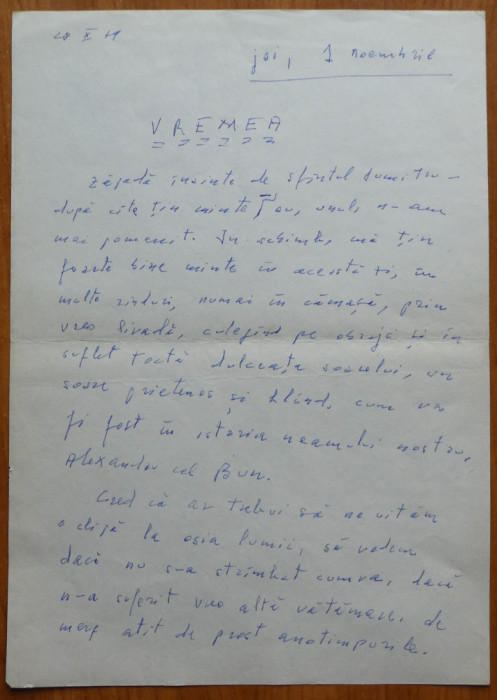 28 X 79
joi, 1 noembrie
VREMEA
Zăpadă înainte de sfîntul Dumitru -
după cîte țin minte eu, unul, n-am
mai pomenit. In schimb, mă țin
foarte bine minte în această zi, în
multe rînduri, numai în cămașă, prin
vreo livadă, culegînd pe obraji și în
suflet toată dulceața soarelui, un
soare prietenos și blînd, cum va
fi fost în istoria neamului nostru,
Alexandru cel Bun.
Cred că ar trebui să ne uităm
o clipă la osia lumii, să vedem
dacă nu s-a strîmbat cumva, dacă
n-a suferit vreo altă vătămare, de
merg atît de prost anotimpurile.